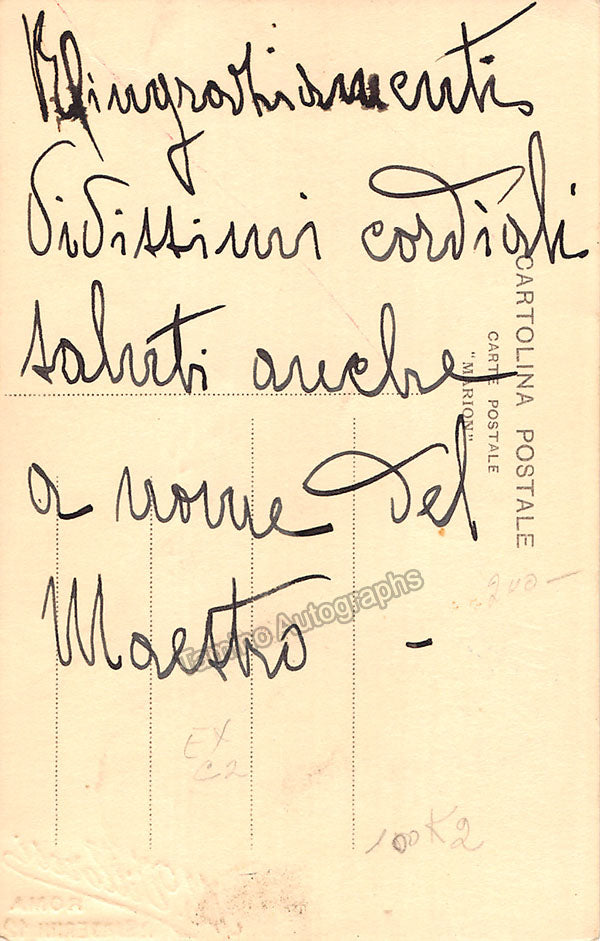 Ringraziamenti
vivissimi cordiali
saluti anche
a nome del
Maestro -
CARTOLINA POSTALE
CARTE POSTALE
"MARION"
Tamino Autographs
EX
C2
100 K2
ROMA